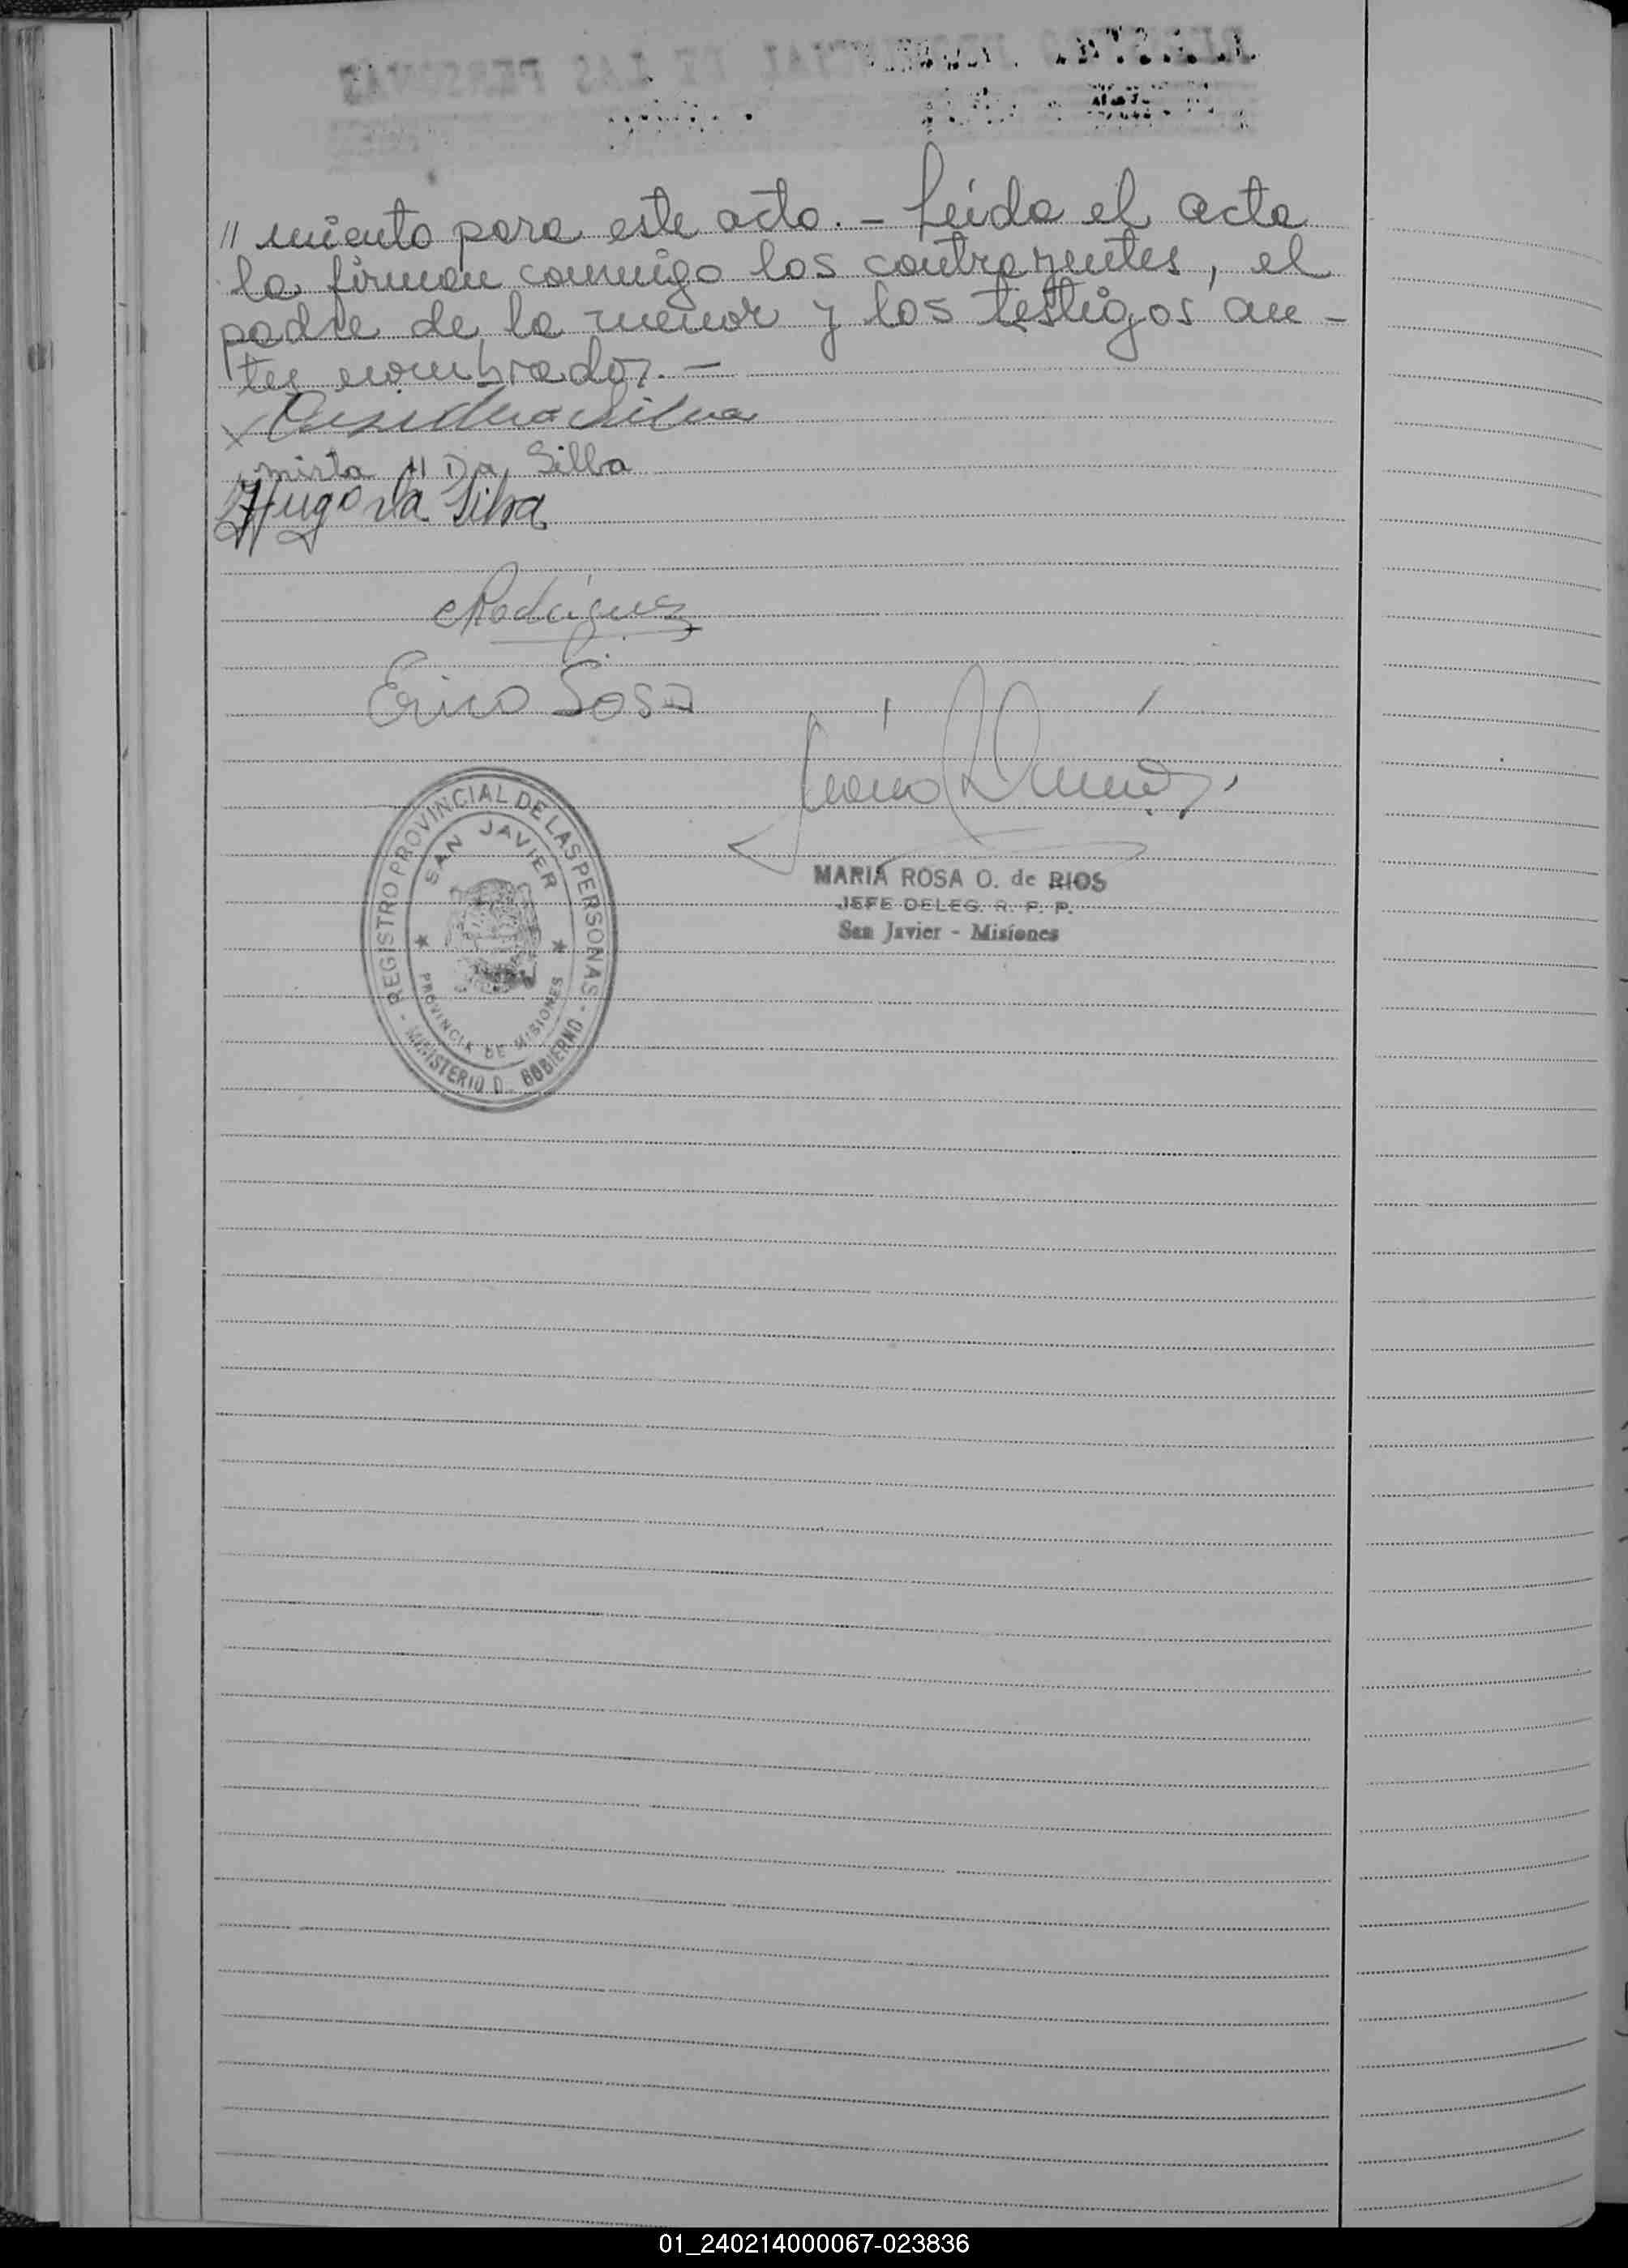 " miento para este acto. - Leída el acta
la firman conmigo los contrayentes, el
padre de la menor y los testigos an-
tes nombrados. -
Silva
mirta Da Silba
Hugo da Silva
Rodriguez
Erico Sosa
REGISTRO PROVINCIAL DE LAS PERSONAS
SAN JAVIER
PROVINCIA DE MISIONES
MINISTERIO D. GOBIERNO
MARIA ROSA O. de RIOS
JEFE DELEG. R. P. P.
San Javier - Misiones
01_240214000067-023836